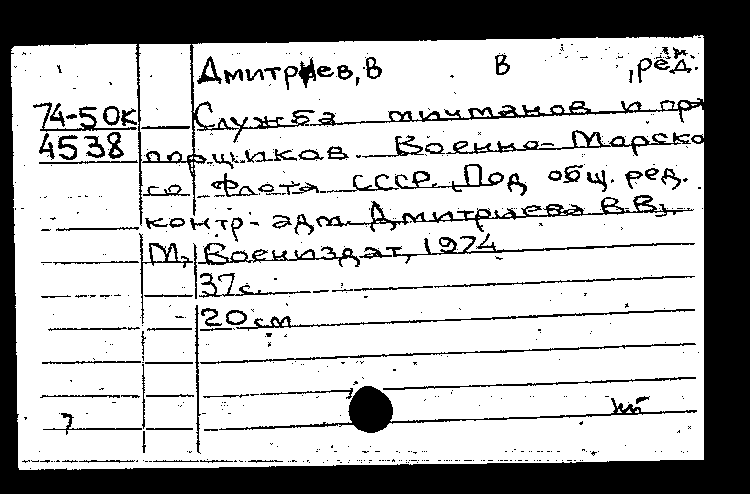 Дмитриев, В В , ред.
74-50к Служба мичманов и пра
4538 порщиков Военно-Морско
го Флота СССР. Под общ. ред.
контр-адм. Дмитриева В.В.
М, Воениздат, 1974
37с.
20 см
7